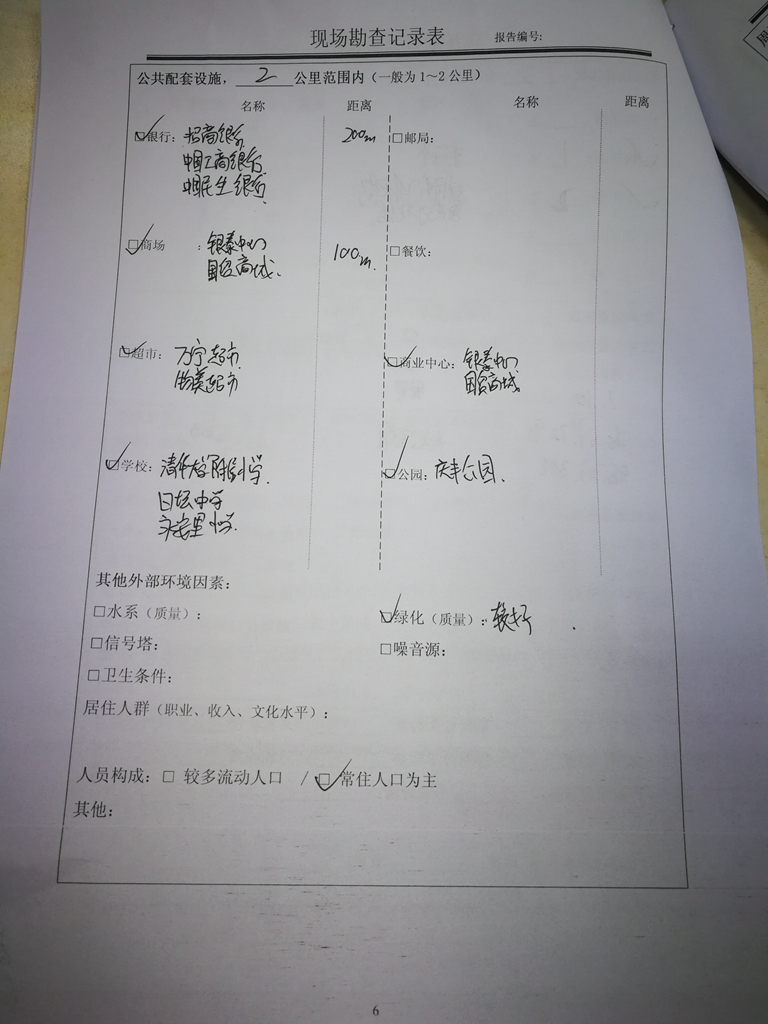 现场勘查记录表 报告编号:
公共配套设施, 2 公里范围内(一般为1~2公里)
名称 距离 名称 距离
☑银行: 招商银行 200m □邮局:
中国工商银行
中国民生银行
☑商场 : 银泰中心 100m. □餐饮:
国贸商城.
☑超市: 万宁超市 ☑商业中心: 银泰中心
物美超市 国贸商城
☑学校: 清华大学附属小学. ☑公园: 庆丰公园.
日坛中学
永安里中学.
其他外部环境因素:
□水系(质量): ☑绿化(质量): 较好
□信号塔: □噪音源:
□卫生条件:
居住人群(职业、收入、文化水平):
人员构成: □ 较多流动人口 / ☑ 常住人口为主
其他:
6